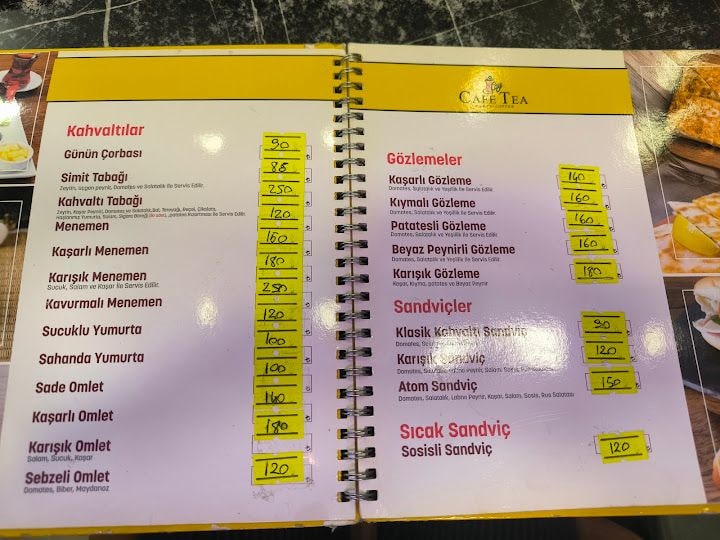 Kahvaltılar
Günün Çorbası 90
Simit Tabağı 85
Zeytin, üçgen peynir, Domates ve Salatalık ile Servis Edilir.
Kahvaltı Tabağı 250
Menemen 120
Kaşarlı Menemen 160
Karışık Menemen 180
Sucuk, Salam ve Kaşar İle Servis Edilir.
Kavurmalı Menemen 250
Sucuklu Yumurta 120
Sahanda Yumurta 100
Sade Omlet 100
Kaşarlı Omlet 140
Karışık Omlet 180
Salam, Sucuk, Kaşar
Sebzeli Omlet 120
Domates, Biber, Maydanoz
CAFE TEA
Gözlemeler
Kaşarlı Gözleme 140
Domates, Salatalık ve Yeşillik ile Servis Edilir.
Kıymalı Gözleme 160
Domates, Salatalık ve Yeşillik ile Servis Edilir.
Patatesli Gözleme 160
Domates, Salatalık ve Yeşillik ile Servis Edilir.
Beyaz Peynirli Gözleme 160
Domates, Salatalık ve Yeşillik ile Servis Edilir.
Karışık Gözleme 180
Kaşar, Kıyma, patates ve Beyaz Peynir
Sandviçler
Klasik Kahvaltı Sandviç 90
Karışık Sandviç 120
Atom Sandviç 150
Domates, Salatalık, Labne Peynir, Kaşar, Salam, Sosis, Rus Salatası
Sıcak Sandviç
Sosisli Sandviç 120